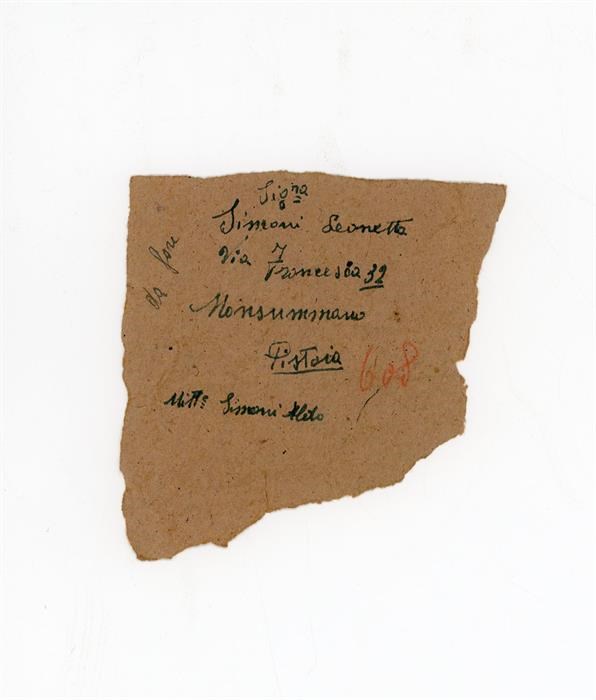 Sig.na
Simoni Leonetta
Via Francesca 32
Monsummano
Pistoia
608
Mitte Simoni Aldo
da fare